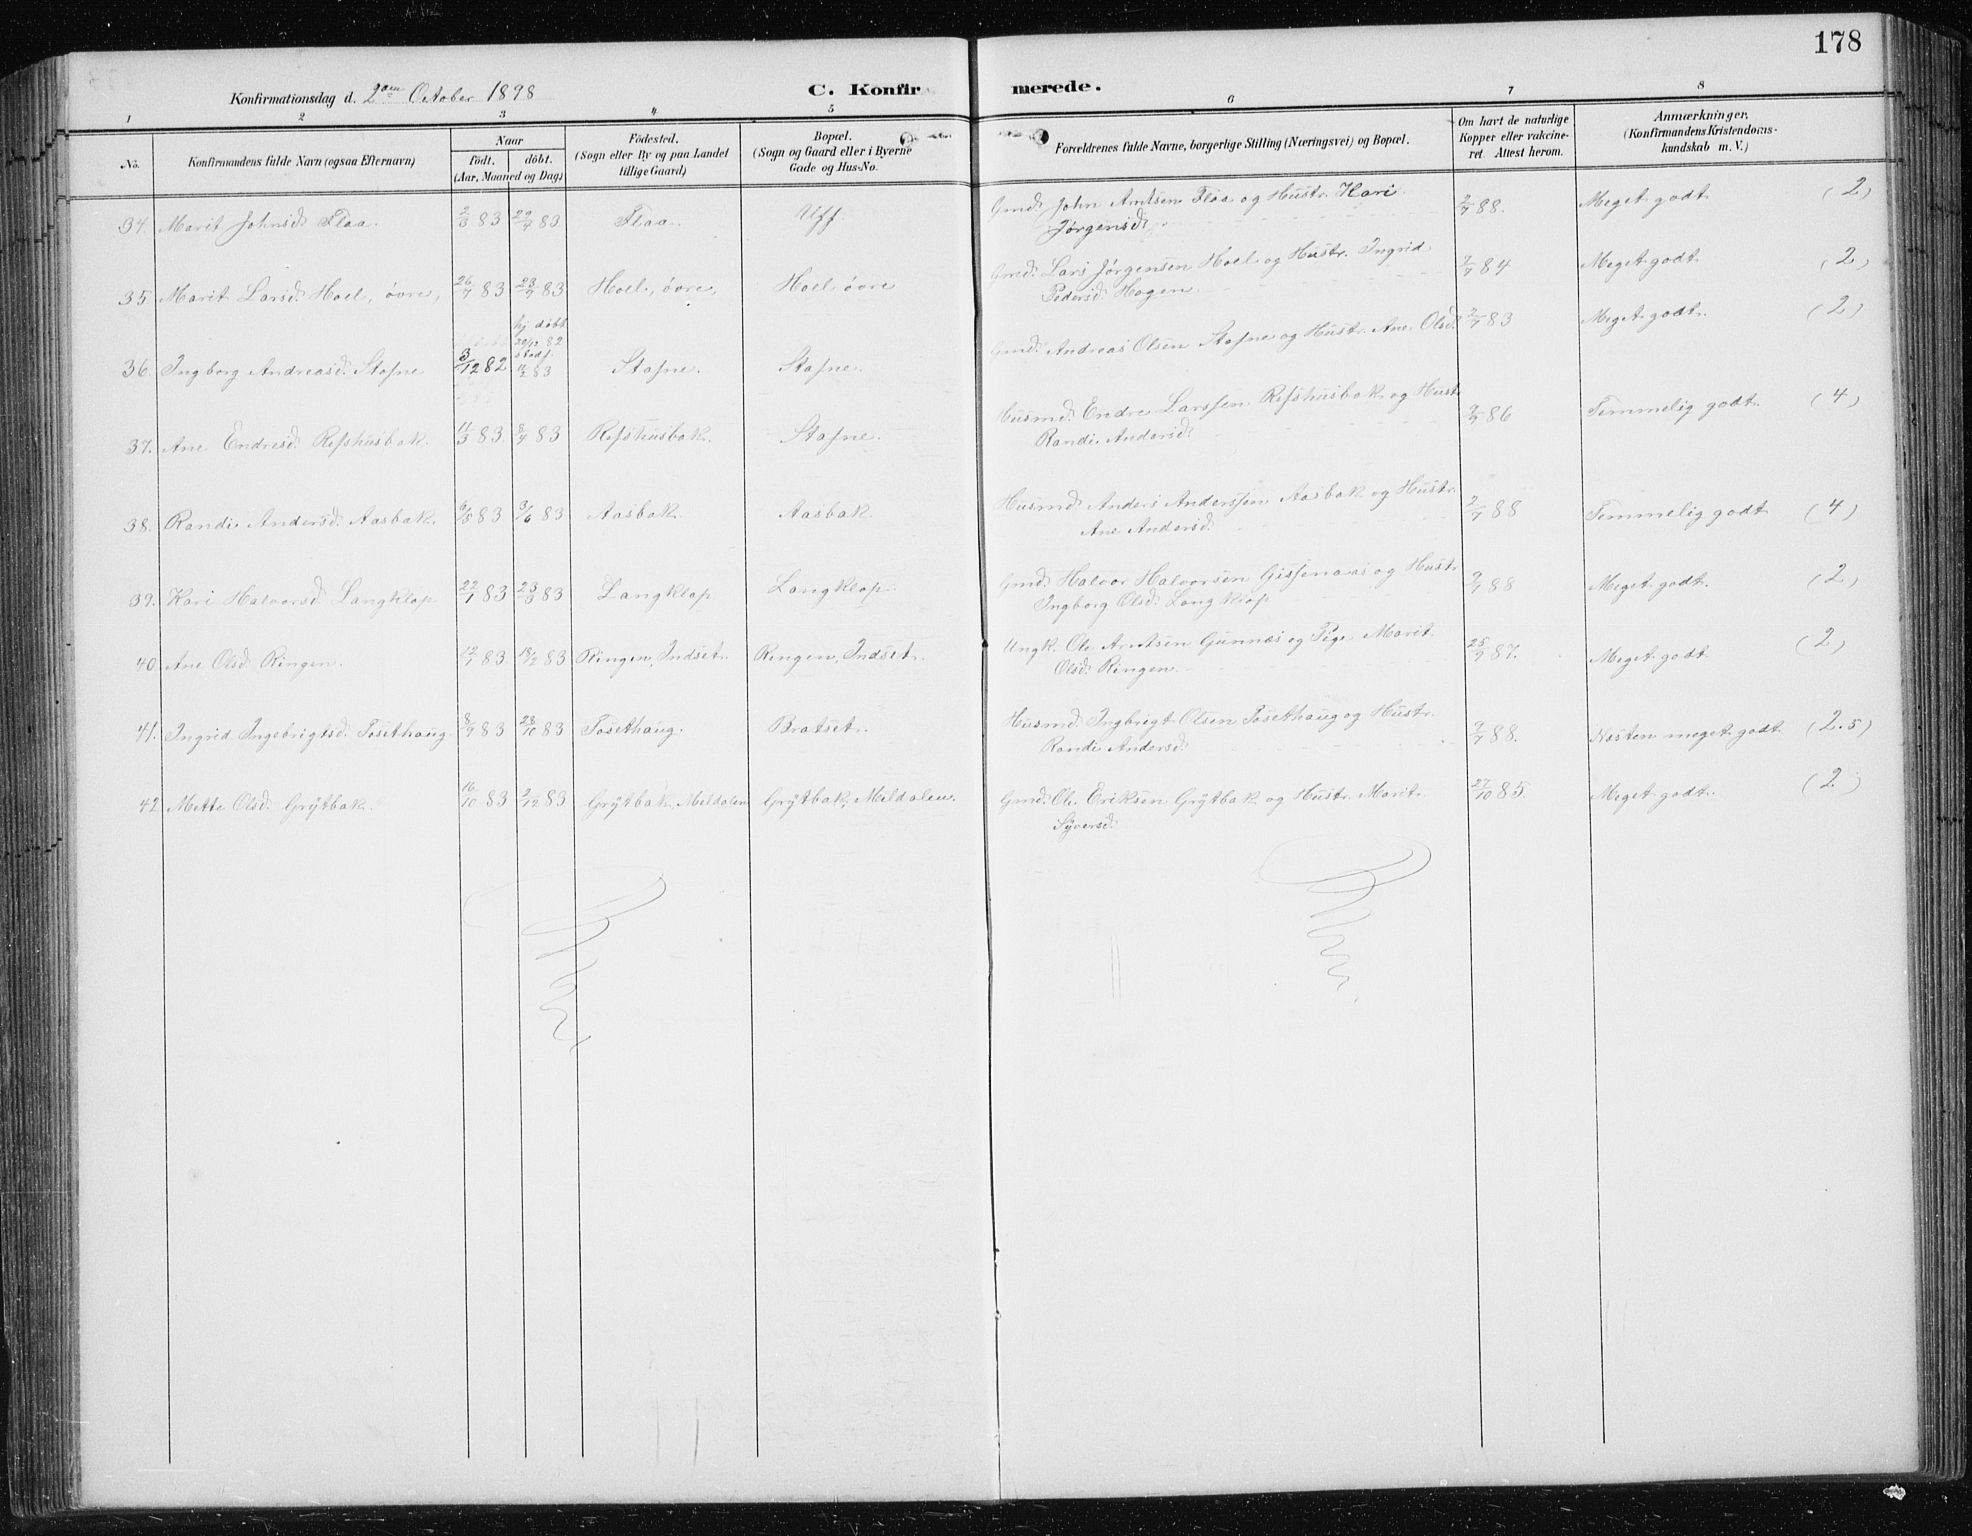 178
Konfirmationsdag d. 2den October 1898
C. Konfirmerede.
1 2 3 4 5 6 7 8
No.
Konfirmandens fulde Navn (ogsaa Efternavn)
Naar
födt. döbt.
(Aar, Maaned og Dag)
Födested.
(Sogn eller By og paa Landet
tillige Gaard)
Bopæl.
(Sogn og Gaard eller i Byerne
Gade og Hus-No.
Forældrenes fulde Navne, borgerlige Stilling (Næringsvei) og Bopæl.
Om havt de naturlige
Kopper eller vakcine-
ret. Attest herom.
Anmærkninger.
(Konfirmandens Kristendoms-
kundskab m. V.)
34. Marit Johnsd. Flaa. 2/3 83 29/4 83 Flaa. Uff. Gmd. John Arntsen Flaa og Hustr. Kari 2/7 88. Meget godt (2)
Jørgensd.
35. Marit Larsd. Hoel, övre, 26/7 83 23/9 83 Hoel, övre, Hoel övre Gmd. Lars Jørgensen Hoel og Hustr. Ingrid 7/7 84 Meget godt (2)
Pedersd. Hagen.
36. Ingborg Andreasd. Stafne 3/12 82 hj. döbt
20/12 82
stadf.
11/2 83 Stafne. Stafne. Gmd. Andreas Olsen Stafne og Hustr. Ane Olsd. 2/7 83 Meget godt. (2)
37. Ane Endresd. Refshusbak. 11/3 83. 8/4 83 Refshusbak. Stafne. Husmd. Endre Larssen Refshusbak og Hustr. 9/9 86 Temmelig godt. (4)
Randi Andersd.
38. Randi Andersd. Aasbak. 9/5 83 3/6 83 Aasbak. Aasbak. Husmd. Anders Anderssen Aasbak og Hustr. 2/7 88 Temmelig godt (4)
Ane Andersd.
39. Kari Halvorsd. Langklop 22/1 83 23/3 83 Langklop Langklop. Gmd. Halvor Halvorsen Gissenaas og Hustr. 2/7 88 Meget godt. (2)
Ingborg Olsd. Langklop
40. Ane Olsd. Ringen. 12/1 83. 18/2 83 Ringen, Indset. Ringen, Indset. Ungk. Ole Arntsen Gunnæs og Pige Marit 25/9 87. Meget godt (2)
Olsd. Ringen.
41. Ingrid Ingebrigtsd. Tosethaug. 8/9 83 28/10 83 Tosethaug. Bratset. Husmd. Ingbrigt Olsen Tosethaug og Hustr. 2/7 88. Næsten meget godt (2.5)
Randi Andersd.
42 Mette Olsd. Grÿtbak. 16/10 83 2/12 83 Grÿtbak, Meldalen Grÿtbak, Meldalen. Gmd. Ole Eriksen Grÿtbak og Hustr. Marit 27/10 85. Meget godt. (2)
Sÿversd.